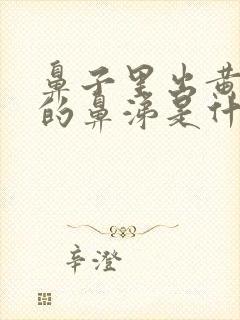 鼻子里出黄
的鼻涕是什
辛澄